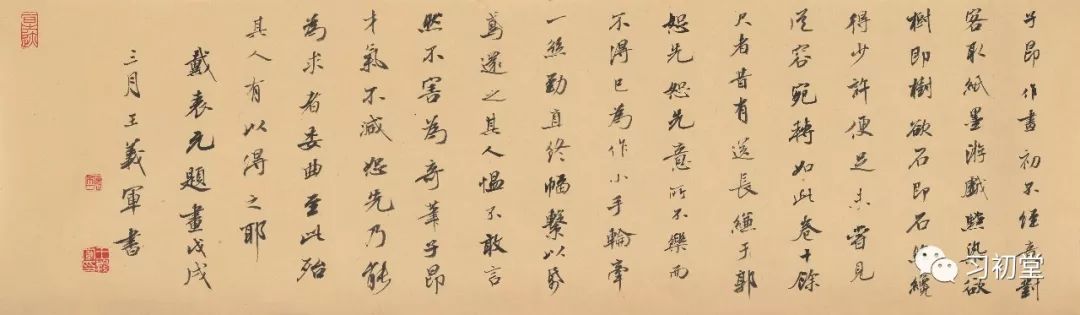 子昂作畫初不經意對
客取紙墨游戲點染欲
樹即樹欲石即石然纔
得少許便足未嘗見
從容宛轉如此卷十餘
尺者昔有送長縑于郭
恕先恕先意所不樂而
不得已為作小手輪牽
一絲勁直終幅繫以帋
鳶還之其人慍不敢言
然不害為奇筆子昂
才氣不減恕先乃能
為求者委曲至此殆
其人有以得之耶
戴表元題畫戊戌
三月王義軍書
习初堂